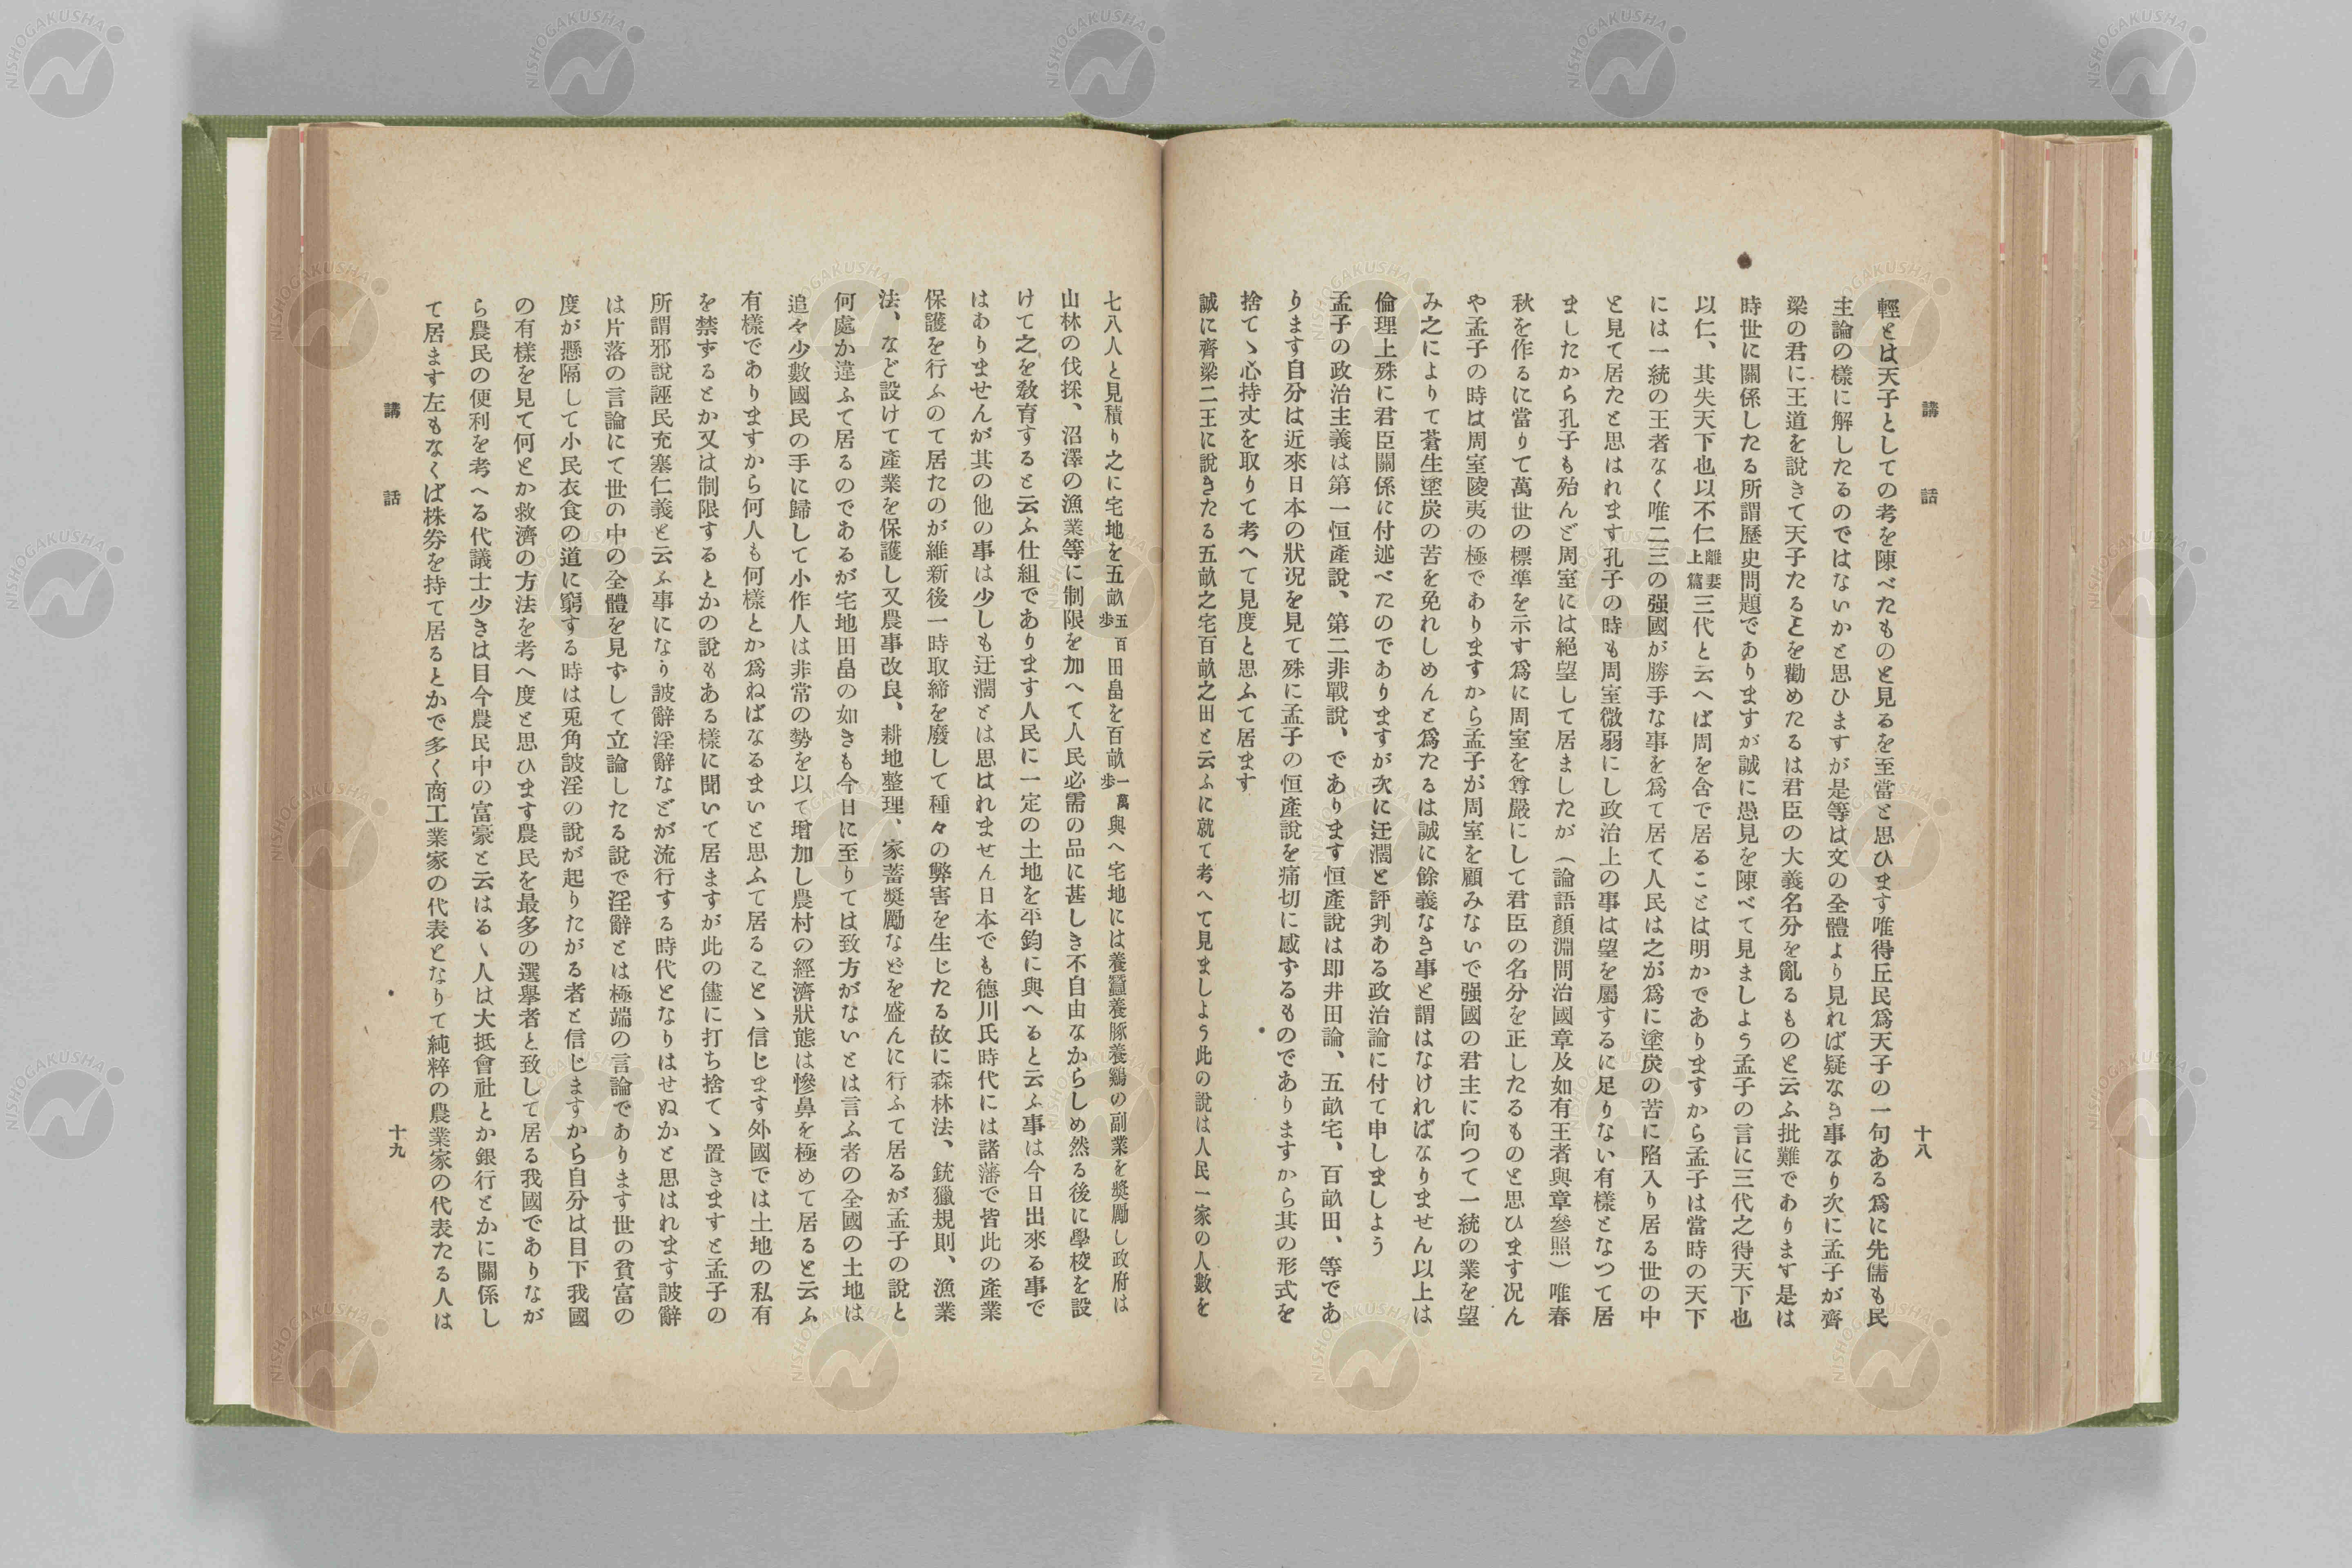 講話
十八
輕とは天子としての考を陳べたものと見るを至當と思ひます唯得丘民爲天子の一句ある爲に先儒も民
主論の樣に解したるのではないかと思ひますが是等は文の全體より見れば疑なき事なり次に孟子が齊
梁の君に王道を說きて天子たるを勸めたるは君臣の大義名分を亂るものと云ふ批難であります是は
時世に關係したる所謂歷史問題でありますが誠に愚見を陳べて見ましよう孟子の言に三代之得天下也
以仁、其失天下也以不仁離婁上篇三代と云へば周を含で居ることは明かでありますから孟子は當時の天下
には一統の王者なく唯二三の强國が勝手な事を爲て居て人民は之が爲に塗炭の苦に陷入り居る世の中
と見て居たと思はれます孔子の時も周室微弱にし政治上の事は望を屬するに足りない有樣となつて居
ましたから孔子も殆んど周室には絕望して居ましたが（論語顏淵問治國章及如有王者與章參照）唯春
秋を作るに當りて萬世の標準を示す爲に周室を尊嚴にして君臣の名分を正したるものと思ひます況ん
や孟子の時は周室陵夷の極でありますから孟子が周室を顧みないで强國の君主に向つて一統の業を望
み之によりて蒼生塗炭の苦を免れしめんと爲たるは誠に餘義なき事と謂はなければなりません以上は
倫理上殊に君臣關係に付述べたのでありますが次に迂濶と評判ある政治論に付て申しましよう
孟子の政治主義は第一恒產說、第二非戰說、であります恒產說は即井田論、五畝宅、百畝田、等であ
ります自分は近來日本の狀况を見て殊に孟子の恒產說を痛切に感するものでありますから其の形式を
捨てゝ心持丈を取りて考へて見度と思ふて居ます
誠に齊梁二王に說きたる五畝之宅百畝之田と云ふに就て考へて見ましよう此の說は人民一家の人數を
七八人と見積り之に宅地を五畝五百步田畠を百畝一萬步與へ宅地には養蠶養豚養鷄の副業を奬勵し政府は
山林の伐採、沼澤の漁業等に制限を加へて人民必需の品に甚しき不自由なからしめ然る後に學校を設
けて之を敎育すると云ふ仕組であります人民に一定の土地を平鈞に與へると云ふ事は今日出來る事で
はありませんが其の他の事は少しも迂濶とは思はれません日本でも德川氏時代には諸藩で皆此の產業
保護を行ふのて居たのが維新後一時取締を廢して種々の弊害を生じたる故に森林法、銃獵規則、漁業
法、など設けて產業を保護し又農事改良、耕地整理、家蓄奬勵などを盛んに行ふて居るが孟子の說と
何處か違ふて居るのであるが宅地田畠の如きも今日に至りては致方がないとは言ふ者の全國の土地は
追々少數國民の手に歸して小作人は非常の勢を以て增加し農村の經濟狀態は慘鼻を極めて居ると云ふ
有樣でありますから何人も何樣とか爲ねばなるまいと思ふて居ることゝ信じます外國では土地の私有
を禁するとか又は制限するとかの說もある樣に聞いて居ますが此の儘に打ち捨てゝ置きますと孟子の
所謂邪說誣民充塞仁義と云ふ事になり詖辭淫辭などが流行する時代となりはせぬかと思はれます詖辭
は片落の言論にて世の中の全體を見ずして立論したる說で淫辭とは極端の言論であります世の貧富の
度が懸隔して小民衣食の道に窮する時は兎角詖淫の說が起りたがる者と信じますから自分は目下我國
の有樣を見て何とか救濟の方法を考へ度と思ひます農民を最多の選擧者と致して居る我國でありなが
ら農民の便利を考へる代議士少きは目今農民中の富豪と云はるゝ人は大抵會社とか銀行とかに關係し
て居ます左もなくば株券を持て居るとかで多く商工業家の代表となりて純粹の農業家の代表たる人は
講話
十九
NISHOGAKUSHA